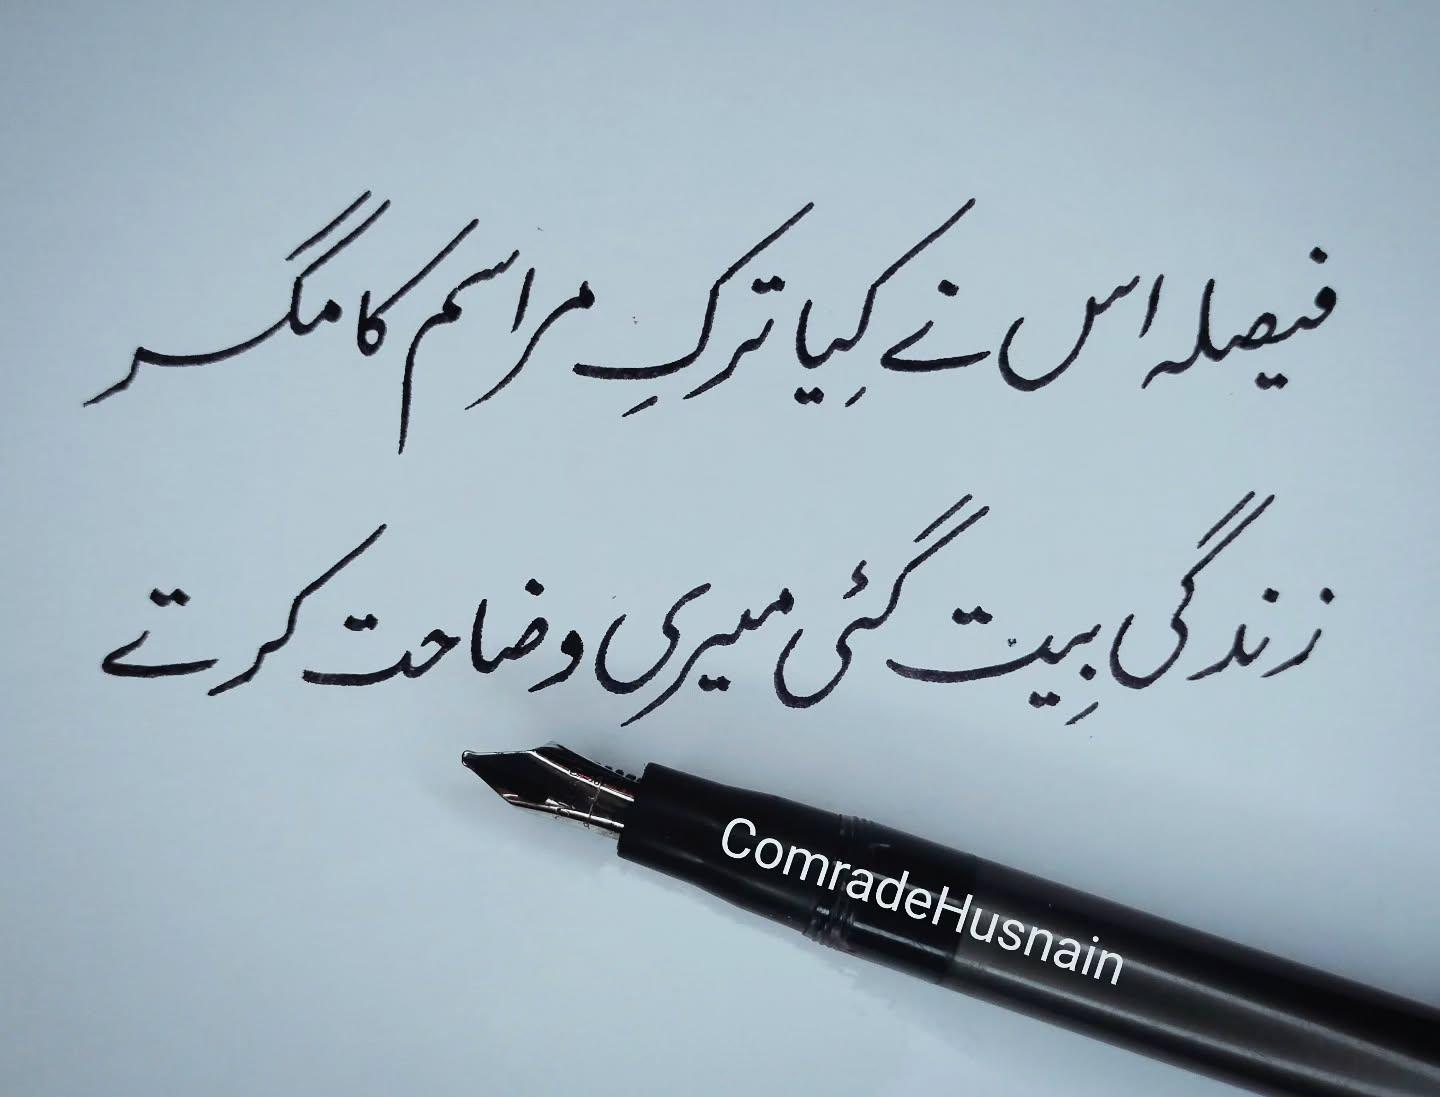 فیصلہ اس نے کِیا ترکِ مراسم کا مگر
زندگی بِیت گئی میری وضاحت کرتے
ComradeHusnain